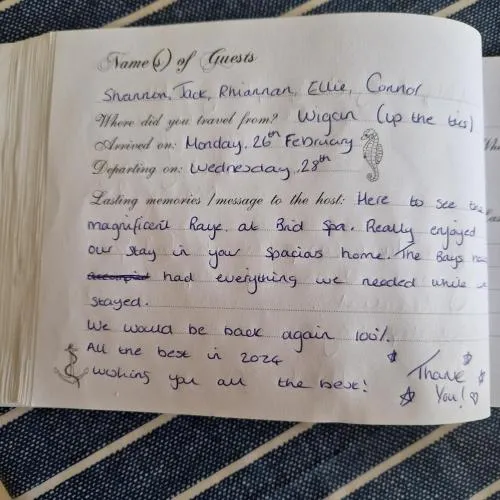 Name(s) of Guests
Shannon, Jack, Rhiannan, Ellie, Connor
Where did you travel from? Wigan (up the tics)
Arrived on: Monday, 26th February
Departing on: Wednesday, 28th
Lasting memories / message to the host: Here to see the
magnificent Raye at Brid Spa. Really enjoyed
our stay in your spacious home. The Bays
had everything we needed while
stayed.
We would be back again 100%.
All the best in 2024
wishing you all the best!
Thank
You!